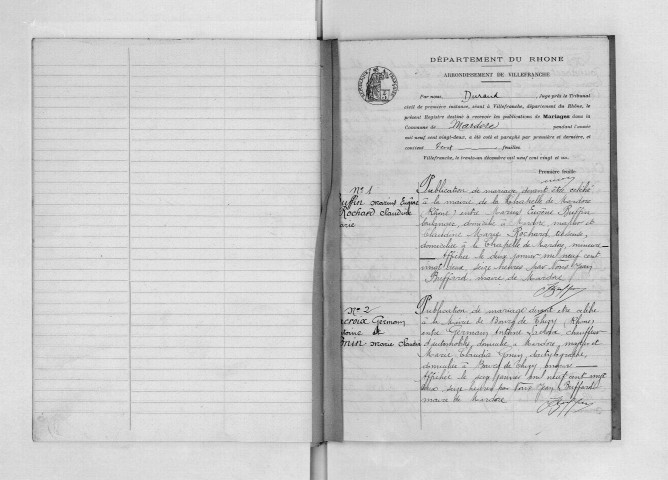 DÉPARTEMENT DU RHONE
ARRONDISSEMENT DE VILLEFRANCHE
Par nous, Durand, Juge près le Tribunal
civil de première instance, séant à Villefranche, département du Rhône, le
présent Registre destiné à recevoir les publications de Mariages dans la
Commune de Mardore pendant l'année
mil neuf cent vingt-deux, a été coté et paraphé par première et dernière, et
contient feuilles
Villefranche, le trente-un décembre mil neuf cent vingt et un.
Première feuille
N° 1
Buffin Marius Eugène
Rochard Claudine
Marie
Publication de mariage devant être célébré
à la mairie de la Chapelle de Mardore
(Rhône) entre Marius Eugène Buffin
domicilié à Mardore, majeur et
Claudine Marie Rochard, tisseuse,
domiciliée à la Chapelle de Mardore, mineure
Affichée le deux janvier mil neuf cent
vingt deux, seize heures par Nous Jean
Buffard, maire de Mardore
N° 2
Lacroix Germain
Antoine et
Marie Claudia
Publication de mariage devant être célébré
à la mairie de Bourg de Thizy (Rhône)
entre Germain Antoine Lacroix, chauffeur
d'automobile, domicilié à Mardore, majeur et
Marie Claudia dactylographe,
domiciliée à Bourg de Thizy
Affichée le seize janvier mil neuf cent vingt
deux, seize heures par Nous Jean Buffard
maire de Mardore